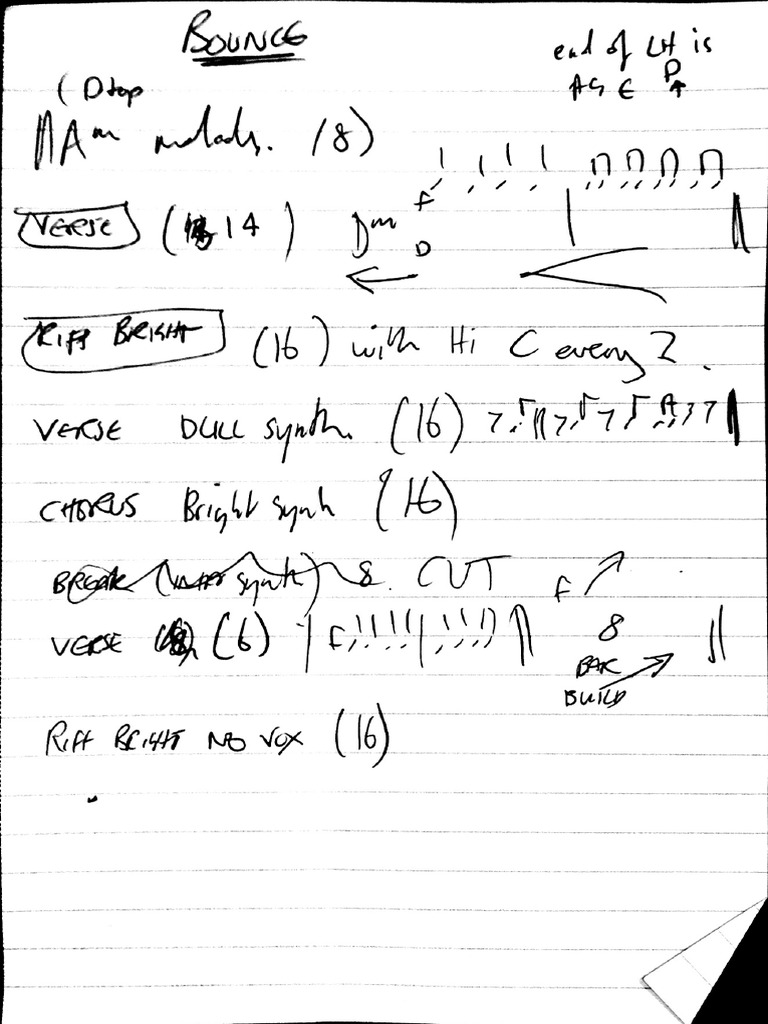 BOUNCE
end of LH is
D
AG E ↑
(D top
Am melody. (8)
F
VERSE (14) Dm D
RIFF BRIGHT (16) with Hi C every 2.
VERSE DULL synth. (16)
CHORUS Bright synth (16)
BREAK synth) 8. CUT F
VERSE (6) F 8
BAR
BUILD
RIFF BRIGHT NO VOX (16)